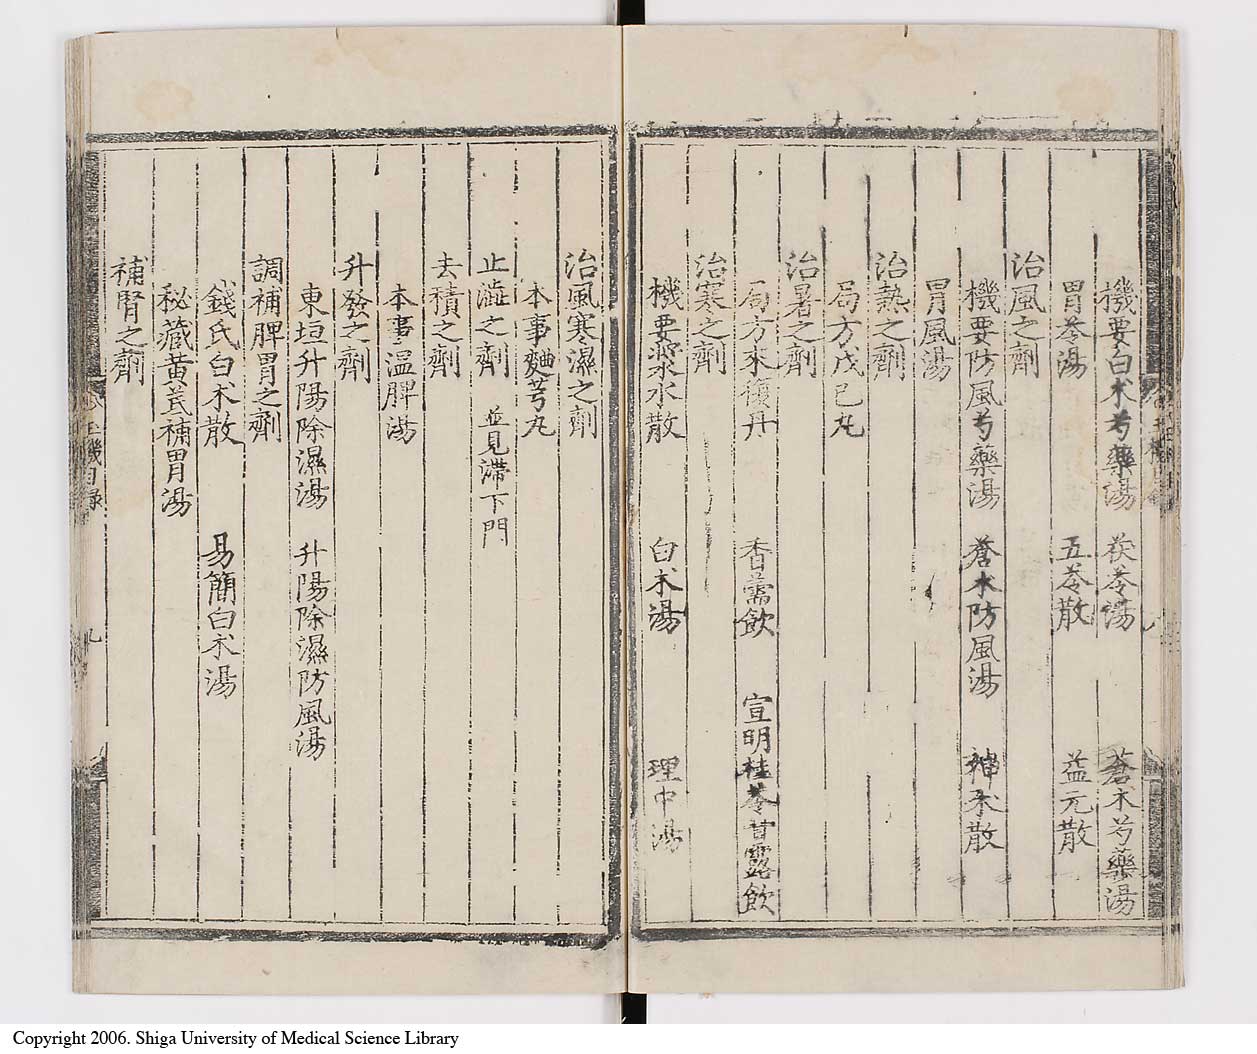 機要白朮芍藥湯　茯苓湯　蒼朮芍藥湯
胃苓湯　五苓散　益元散
治風之劑
機要防風芍藥湯　蒼朮防風湯　神朮散
胃風湯
治熱之劑
局方戊己丸
治暑之劑
局方來復丹　香薷飲　宣明桂苓甘露飲
治寒之劑
機要漿水散　白朮湯　理中湯
治風寒濕之劑
本事麯芎丸
止澁之劑　並見滯下門
去積之劑
本事温脾湯
升發之劑
東垣升陽除濕湯　升陽除濕防風湯
調補脾胃之劑
錢氏白朮散　易簡白朮湯
秘藏黄芪補胃湯
補腎之劑
玉機目録
九
Copyright 2006. Shiga University of Medical Science Library